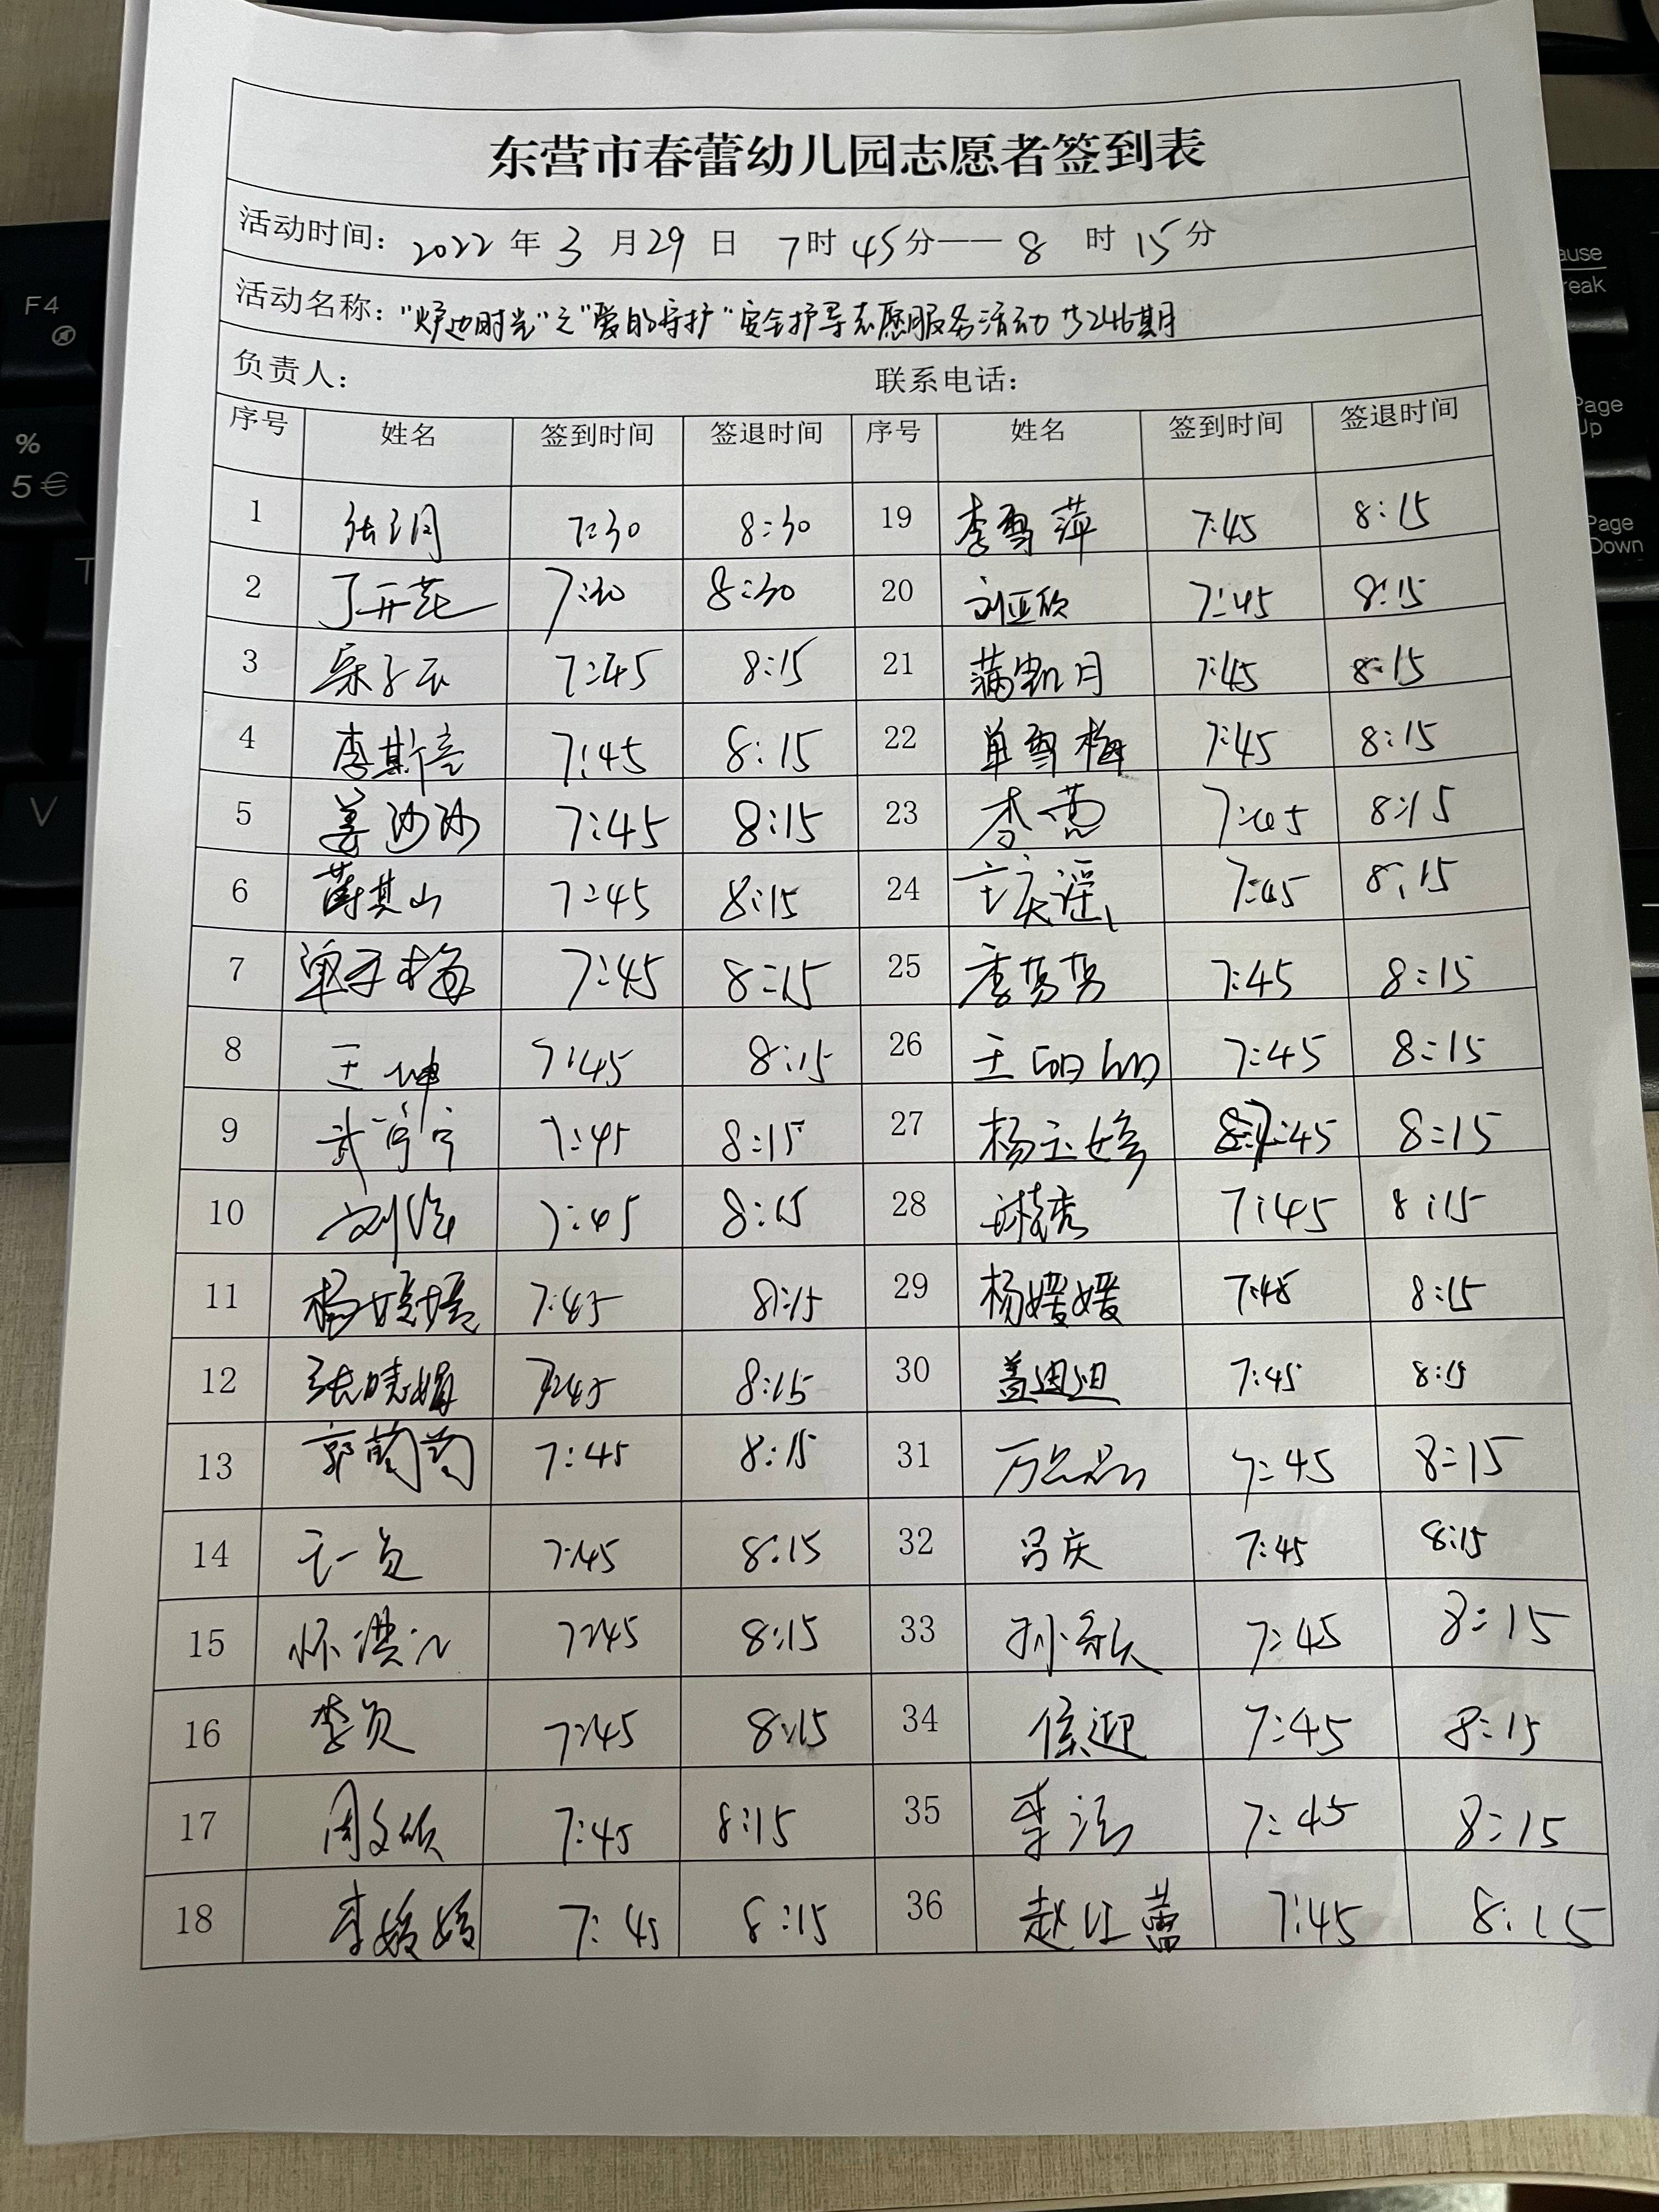 东营市春蕾幼儿园志愿者签到表
活动时间：2022 年 3 月 29 日 7 时 45 分——8 时 15 分
活动名称："炉边时光"之"爱的守护"安全护导志愿服务活动 共246期
负责人： 联系电话：
序号 姓名 签到时间 签退时间 序号 姓名 签到时间 签退时间
1 7:30 8:30 19 李雪萍 7:45 8:15
2 丁开花 7:30 8:30 20 刘亚欣 7:45 8:15
3 7:45 8:15 21 蒲凯月 7:45 8:15
4 李斯亮 7:45 8:15 22 单雪梅 7:45 8:15
5 姜沙沙 7:45 8:15 23 李蕾 7:45 8:15
6 蔺其山 7:45 8:15 24 7:45 8:15
7 7:45 8:15 25 李男男 7:45 8:15
8 王坤 7:45 8:15 26 王丽丽 7:45 8:15
9 武宁宁 7:45 8:15 27 杨玉婷 7:45 8:15
10 7:45 8:15 28 7:45 8:15
11 杨婷婷 7:45 8:15 29 杨媛媛 7:45 8:15
12 张晓娟 7:45 8:15 30 盖迪迪 7:45 8:15
13 郭萌萌 7:45 8:15 31 万品品 7:45 8:15
14 7:45 8:15 32 吕庆 7:45 8:15
15 7:45 8:15 33 7:45 8:15
16 7:45 8:15 34 侯迎 7:45 8:15
17 周文硕 7:45 8:15 35 7:45 8:15
18 李媛媛 7:45 8:15 36 赵红蕾 7:45 8:15
F4
%
5 €
T
V
Page
Up
Page
Down